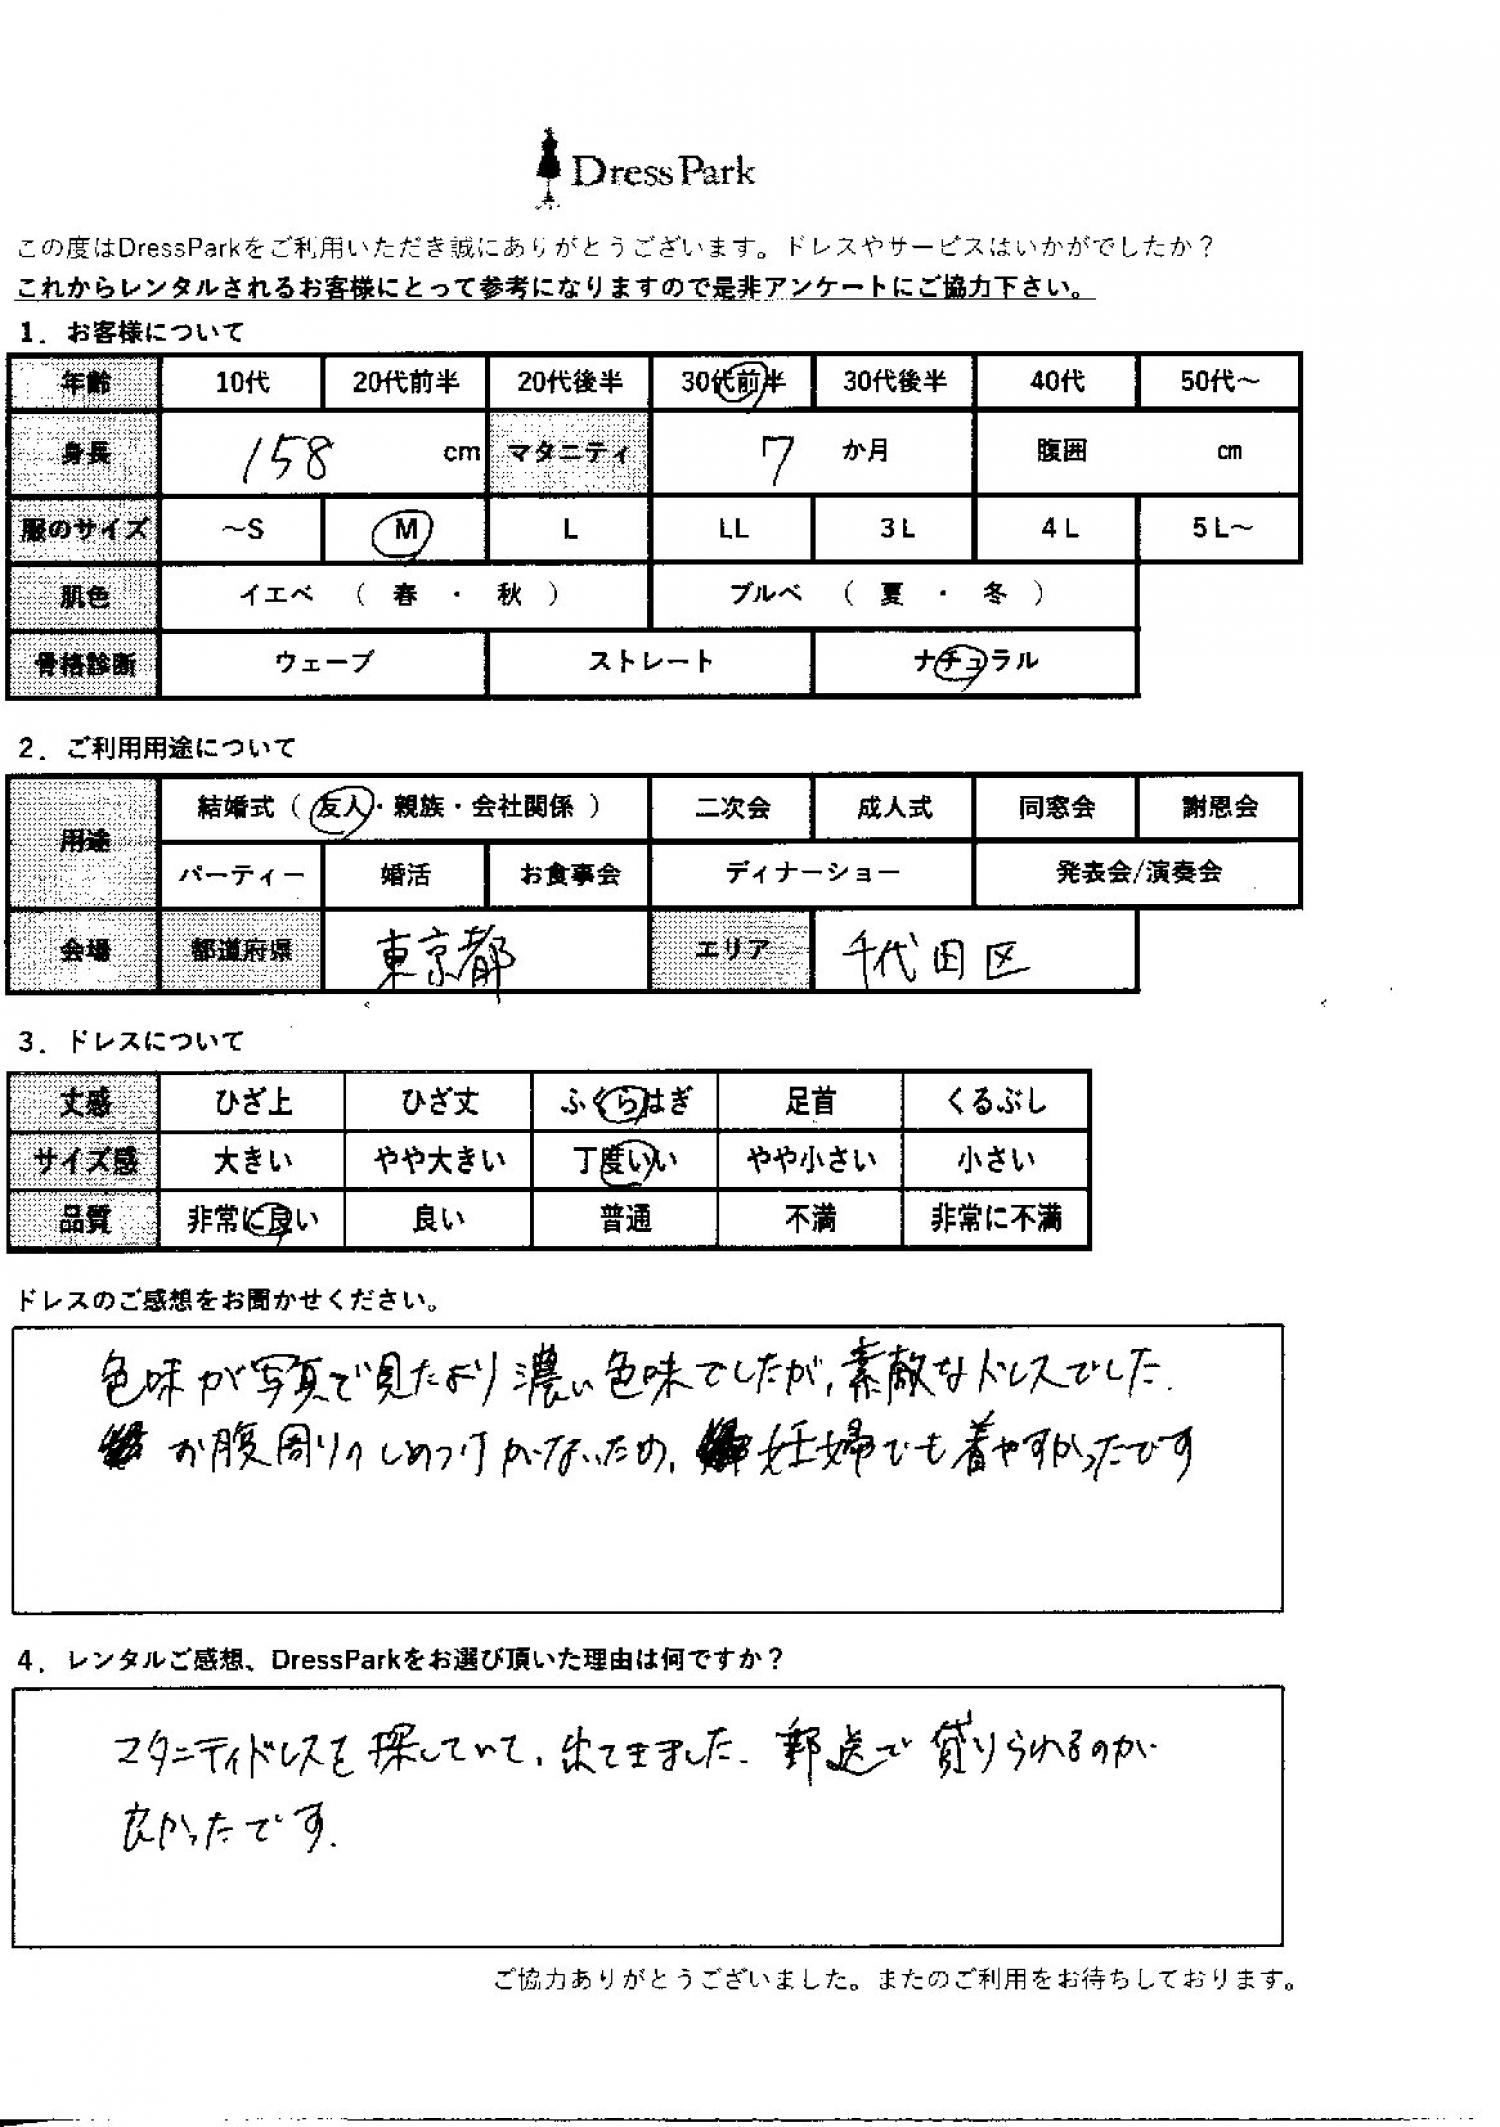 DressPark
この度はDressParkをご利用いただき誠にありがとうございます。ドレスやサービスはいかがでしたか？
これからレンタルされるお客様にとって参考になりますので是非アンケートにご協力下さい。
1．お客様について
年齢 10代 20代前半 20代後半 30代前半 30代後半 40代 50代～
身長 158 cm マタニティ 7 か月 腹囲 cm
服のサイズ ～S M L LL 3L 4L 5L～
肌色 イエベ （ 春 ・ 秋 ） ブルベ （ 夏 ・ 冬 ）
骨格診断 ウェーブ ストレート ナチュラル
2．ご利用用途について
用途 結婚式（ 友人・親族・会社関係 ） 二次会 成人式 同窓会 謝恩会
パーティー 婚活 お食事会 ディナーショー 発表会/演奏会
会場 都道府県 東京都 エリア 千代田区
3．ドレスについて
丈感 ひざ上 ひざ丈 ふくらはぎ 足首 くるぶし
サイズ感 大きい やや大きい 丁度いい やや小さい 小さい
品質 非常に良い 良い 普通 不満 非常に不満
ドレスのご感想をお聞かせください。
色味が写真で見たより濃い色味でしたが、素敵なドレスでした.
お腹周りのしめつけがないため、妊婦でも着やすかったです
4．レンタルご感想、DressParkをお選び頂いた理由は何ですか？
マタニティドレスを探していて、出てきました. 郵送で借りられるのが
良かったです.
ご協力ありがとうございました。またのご利用をお待ちしております。